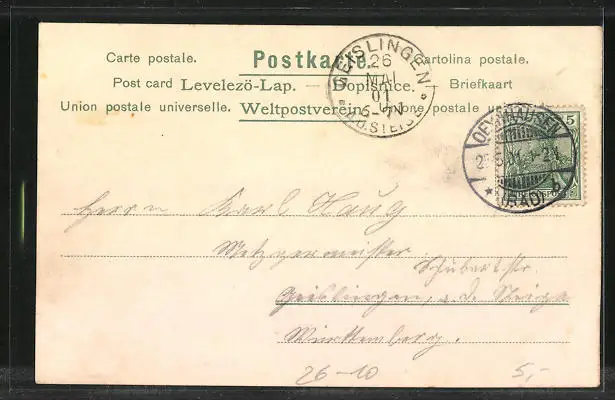 Carte postale. Postkarte. Cartolina postale.
Post card Levelezö-Lap. — Dopisnice. Briefkaart
Union postale universelle. Weltpostverein. Unione postale
GEISLINGEN
26
MAI
01
6-7N
OEYNHAUSEN
(BAD)
5
Herrn Karl Haug
Metzgermeister
Schubartstr.
Geislingen, a. d. Steige
Württemberg.
26-10 5,-